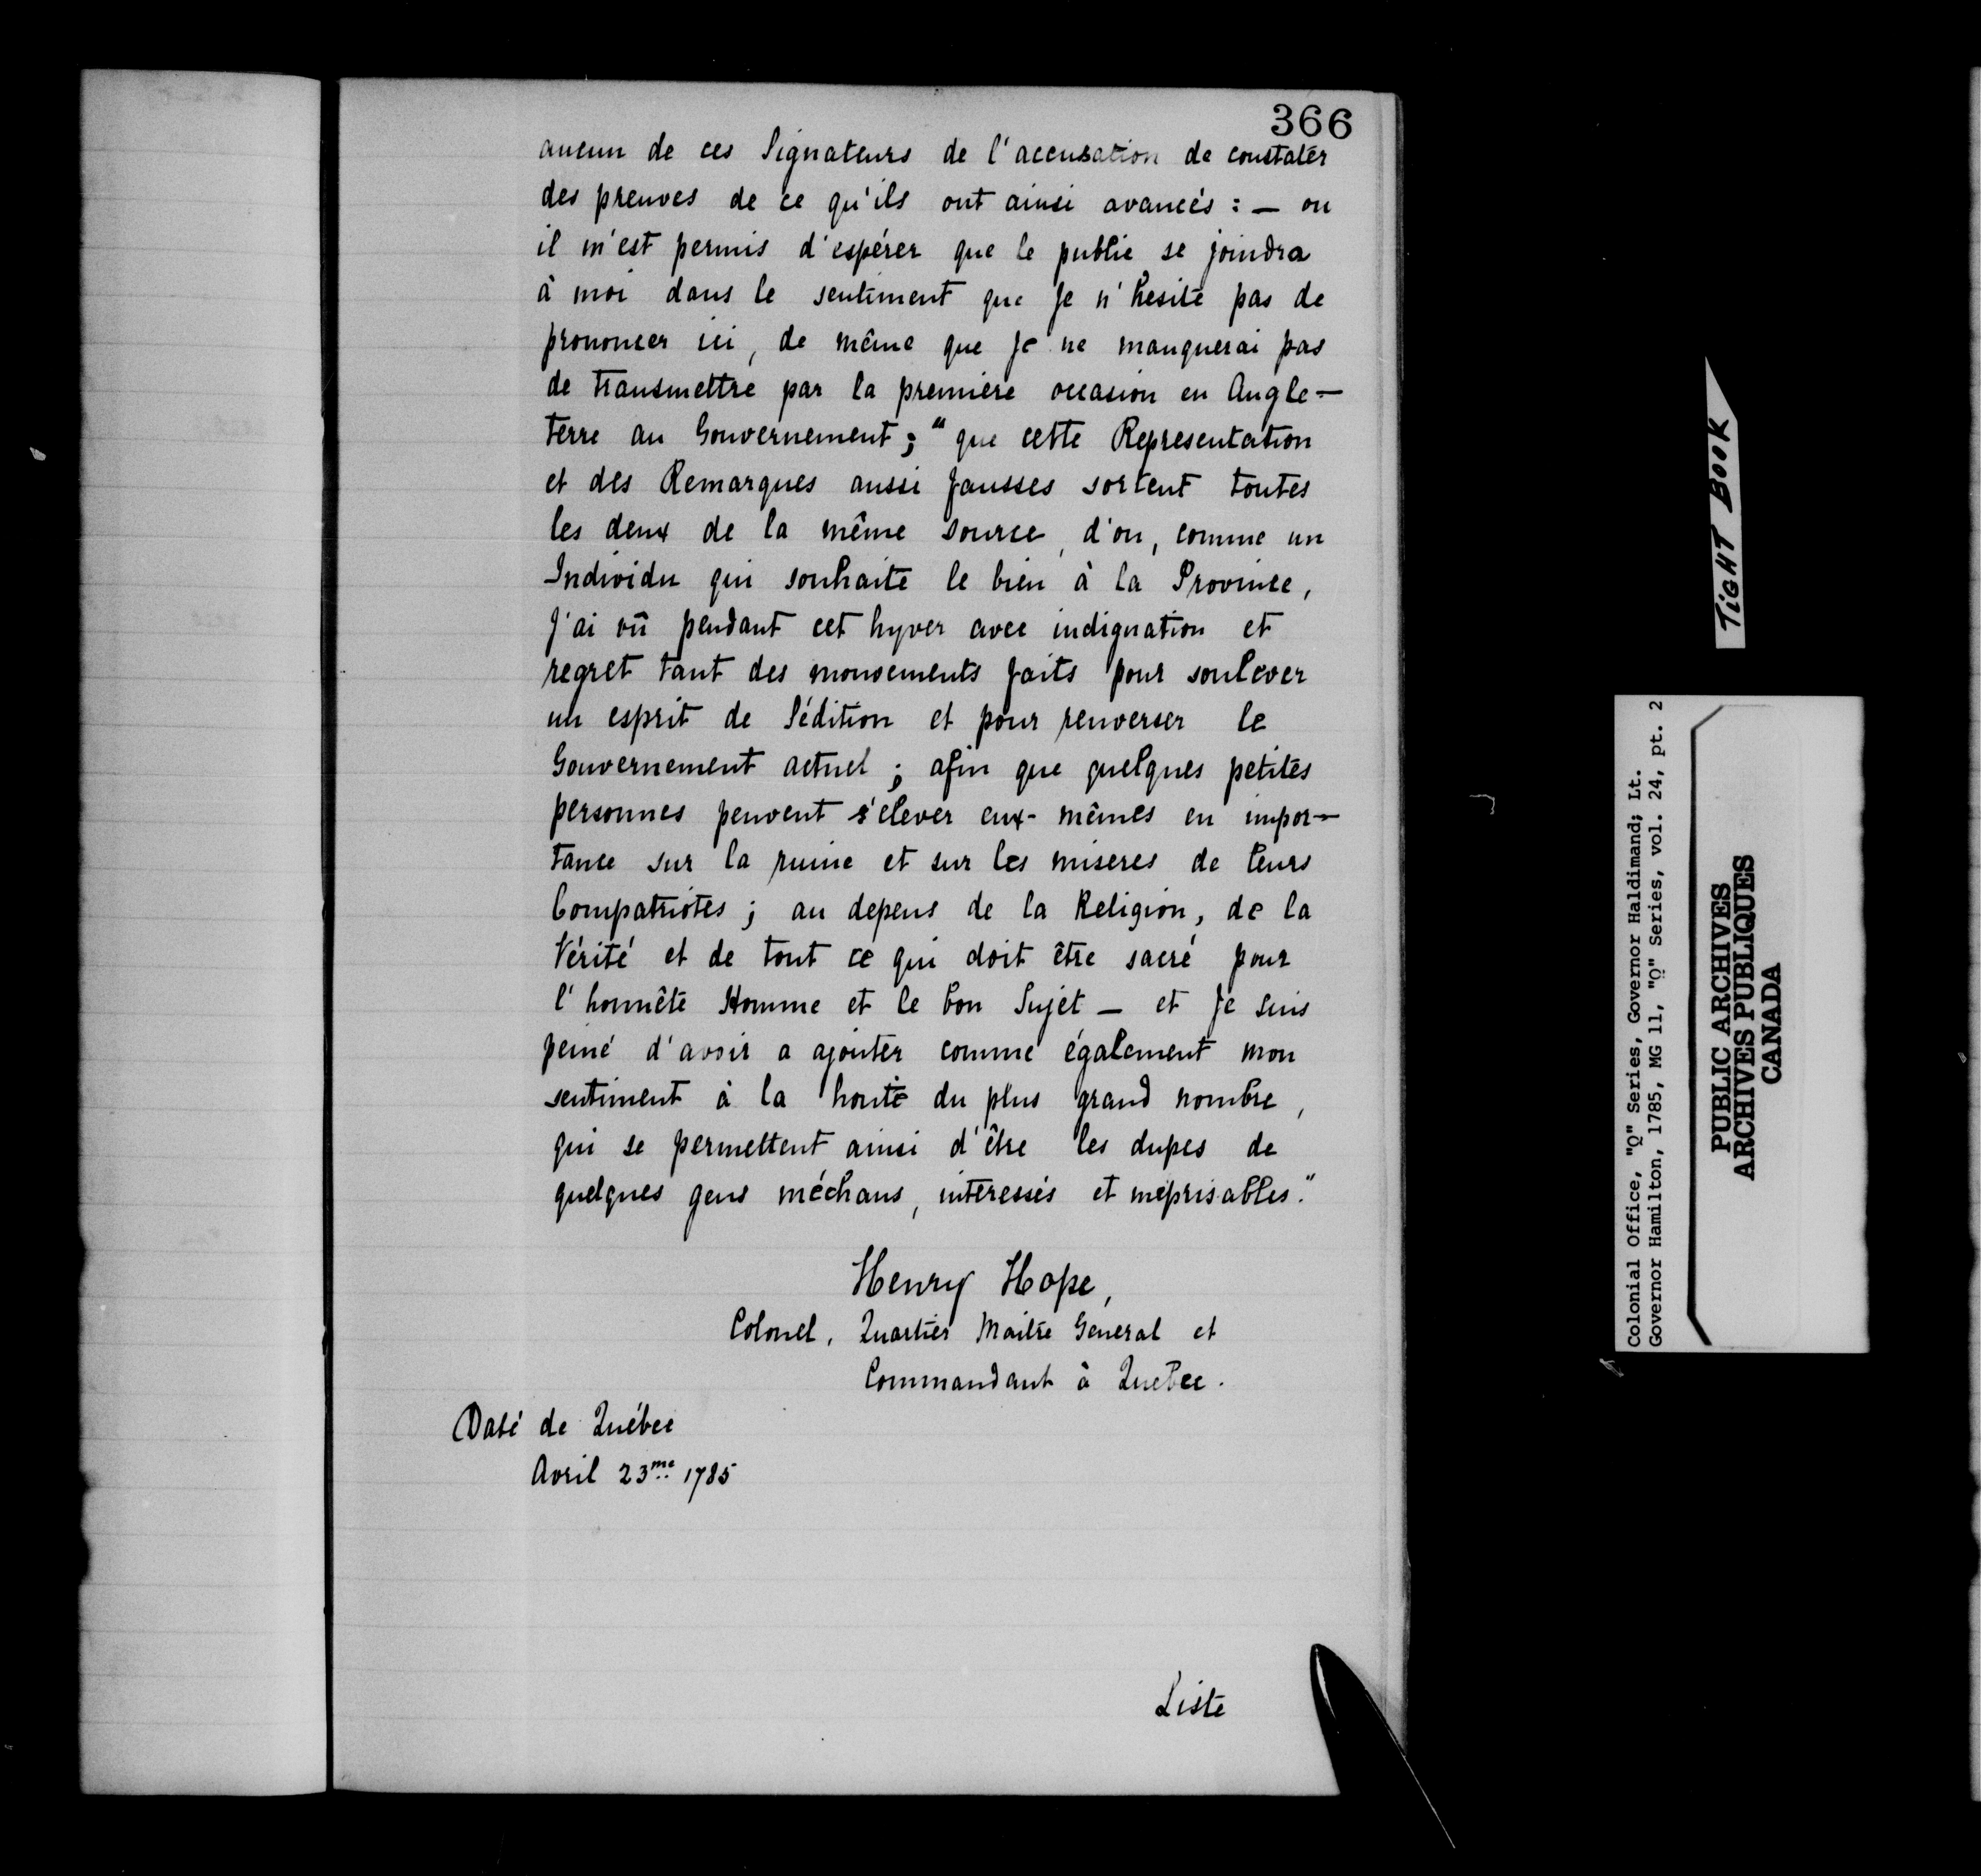 366
aucun de ces Signateurs de l'accusation de constater
des preuves de ce qu'ils ont ainsi avancés : — ou
il m'est permis d'espérer que le public se joindra
à moi dans le sentiment que Je n'hesite pas de
prononcer ici, de même que Je ne manquerai pas
de transmettre par la première occasion en Angle-
terre au Gouvernement ; "que cette Representation
et des Remarques aussi fausses sortent toutes
les deux de la même source, d'ou, comme un
Individu qui souhaite le bien à la Province,
J'ai vû pendant cet hyver avec indignation et
regret tant des mouvements faits pour soulever
un esprit de Sédition et pour renverser le
Gouvernement actuel ; afin que quelques petites
personnes peuvent s'elever eux-mêmes en impor-
tance sur la ruine et sur les miseres de leurs
Compatriotes ; au depens de la Religion, de la
Vérité et de tout ce qui doit être sacré pour
l'honnête Homme et le bon Sujet — et Je suis
peiné d'avoir a ajouter comme également mon
sentiment à la honte du plus grand nombre,
qui se permettent ainsi d'être les dupes de
quelques gens méchans, interessés et méprisables."
Henry Hope,
Colonel, Quartier Maitre General et
Commandant à Quebec.
Daté de Québec
Avril 23me 1785
Liste
TIGHT BOOK
Colonial Office, "Q" Series, Governor Haldimand; Lt.
Governor Hamilton, 1785, MG 11, "Q" Series, vol. 24, pt. 2
PUBLIC ARCHIVES
ARCHIVES PUBLIQUES
CANADA